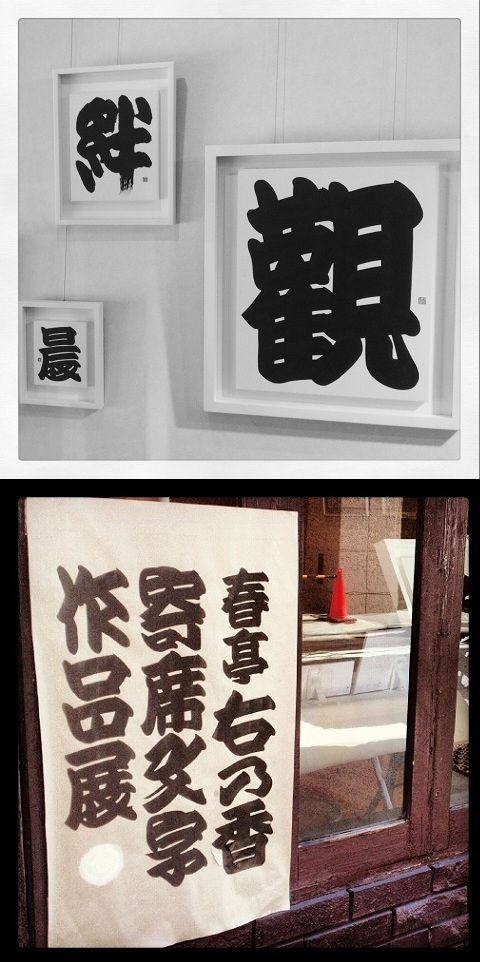 絆
觀
晨
春亭右乃香
寄席文字
作品展